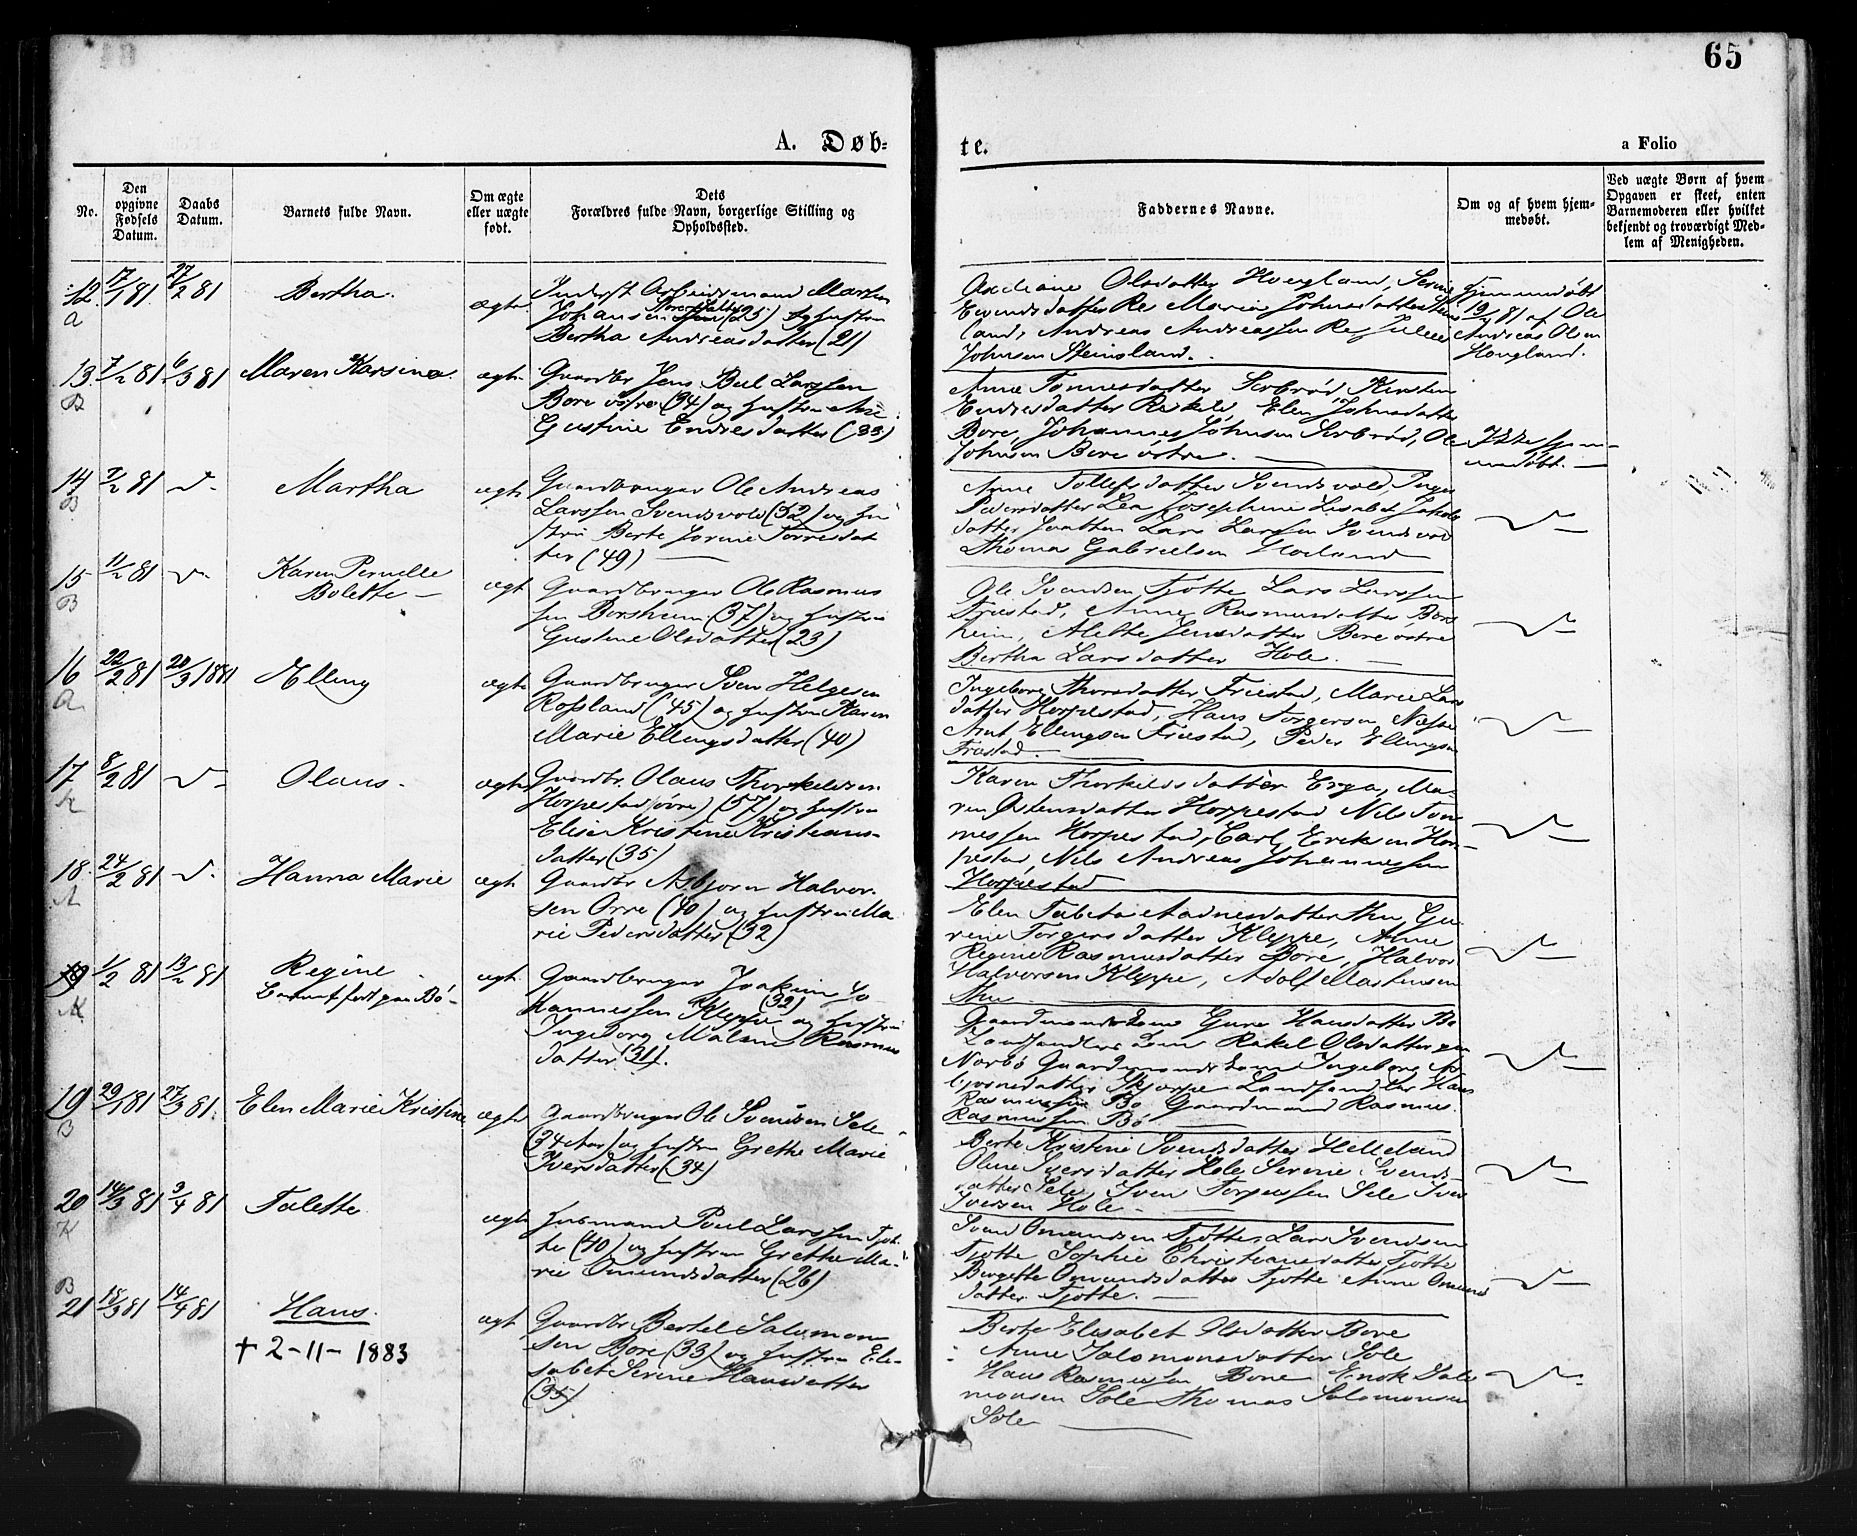 65
A. Døb-
te.
a Folio
No.
Den
opgivne
Fødsels
Datum.
Daabs
Datum.
Barnets fulde Navn.
Om ægte
eller uægte
født.
Dets
Forældres fulde Navn, borgerlige Stilling og
Opholdssted.
Faddernes Navne.
Om og af hvem hjem-
medøbt.
Ved uægte Børn af hvem
Opgaven er skeet, enten
Barnemoderen eller hvilket
bekjendt og troværdigt Med-
lem af Menigheden.
12. 17/1 81 27/2 81 Bertha. ægte
A
Inderst Arbeidsmand Marten
Johansen (25) og hustru
Bertha Andreasdatter (21)
Olsdatter Hougland, Serine
Marie Johnsdatter Steins
land, Andreas Andreassen Re
Johnsen Steinsland.
Hjemmedøbt
af Ole
Andreas Olsen
Hougland.
13. 7/2 81 6/3 81 Maren Karsine ægte
B
Gaardbr Jens Bul Larssen
Bore østre (34) og hustru Ane
Gustine Endresdatter (33)
Anne Tønnesdatter Serbrød Kirsten
Endresdatter Elen Johnsdatter
Bore, Johannes Johnsen Serbrød, Ole
Johnsen Bore østre.
Ikke hjem-
medøbt.
14 7/2 81 Martha ægte
B
Gaardbruger Ole Andreas
Larssen Svendsvold (32) og hu
stru Berte Jorine Torresdat
ter (49)
Anne Tollefsdatter Svendsvold, Inger
Pedersdatter Josephine Lisabet
datter Lars Larssen Svendsvold
Thomas Gabrielsen
15 11/2 81 Karen Pernelle ægte
B
Bolette
Gaardbruger Ole Rasmus
sen Borsheim (37) og hustru
Gustine Olsdatter (23)
Ole Svendsen Tjøtte Lars Larssen
Friestad, Anne Rasmusdatter Bors
heim, Alette Jensdatter Bore østre
Bertha Larsdatter Hole.
16 22/2 81 20/3 1881 Elling ægte
A
Gaardbruger Sven Helgesen
Rossland (45) og hustru Karen
Marie Ellingsdatter (40)
Ingeborg Thorsdatter Friestad, Marie Lars
datter Horpestad, Hans Torgersen
Ellingsen Friestad, Peder Ellingsen
Friestad
17 8/2 81 Olaus. ægte
K
Gaardbr. Olaus Thorkeldsen
Horpestad (57) og hustru
Elise Kristine Kristians-
datter (35)
Karen Thorkeldsdatter Erga, Ma-
ren Østensdatter Horpestad Nils Tøn
nessen Horpestad, Carl Eriksen Hor-
pestad, Nils Andreas Johannessen
Horpestad
18. 24/2 81 Hanna Marie ægt.
A
Gaardbr Asbjørn Halvor-
sen Orre (40) og hustru Ma-
rie Pedersdatter (32)
Elen Tabeta Aadnesdatter Thu, Gu
rine Torgersdatter Kleppe, Anne
Regine Rasmusdatter Bore, Halvor
Halvorsen Kleppe, Adolf Martensen
Thu
19 1/2 81 13/2 81 Regine ægt.
K
Barnet født paa Bø-
Gaardbruger Joakim Jo
hannessen Kleppe (32) og hustru
Ingeborg Malene Rasmus
datter (31).
Gaardmandskone Gure Hansdatter Bø
Landhandlers kone Rakel Olsdatter
Nærbø Gaardmandskone Ingeborg As
bjørnsdatter Skjorpe Landhandler Hans
Rasmussen Bø Gaardmand Rasmus
Rasmussen Bø
19 29/1 81 27/3 81. Elen Marie Kristine ægte
B
Gaardbruger Ole Svendsen Sele
(34 Aar) og hustru Grethe Marie
Iversdatter (34)
Berte Kristine Svendsdatter Helleland
Oline Iversdatter Hole Serine Svends-
datter Sele, Sven Torgersen Sele Iver
Iversen Hole.
20 14/3 81 3/4 81 Talette ægte
K
Husmand Poul Larssen Tjøt-
te (40) og hustru Grethe Ma-
rie Omundsdatter (26)
Svend Omundsen Tjøtte, Lars Svendsen
Tjøtte Sophie Christiansdatter Tjøtte
Bergitte Omundsdatter Tjøtte Anne Omunds
datter Tjøtte.
B
21 18/3 81 14/4 81 Hans. ægt
† 2-11-1883
Gaardbr Bertel Salomon
sen Bore (33) og hustru Eli-
sabet Serine Hansdatter
(35)
Berte Elisabet Olsdatter Bore
Anne Salomonsdatter Sole
Hans Rasmussen Bore Enok Salo
monsen Sole Thomas Salomonsen
Sole